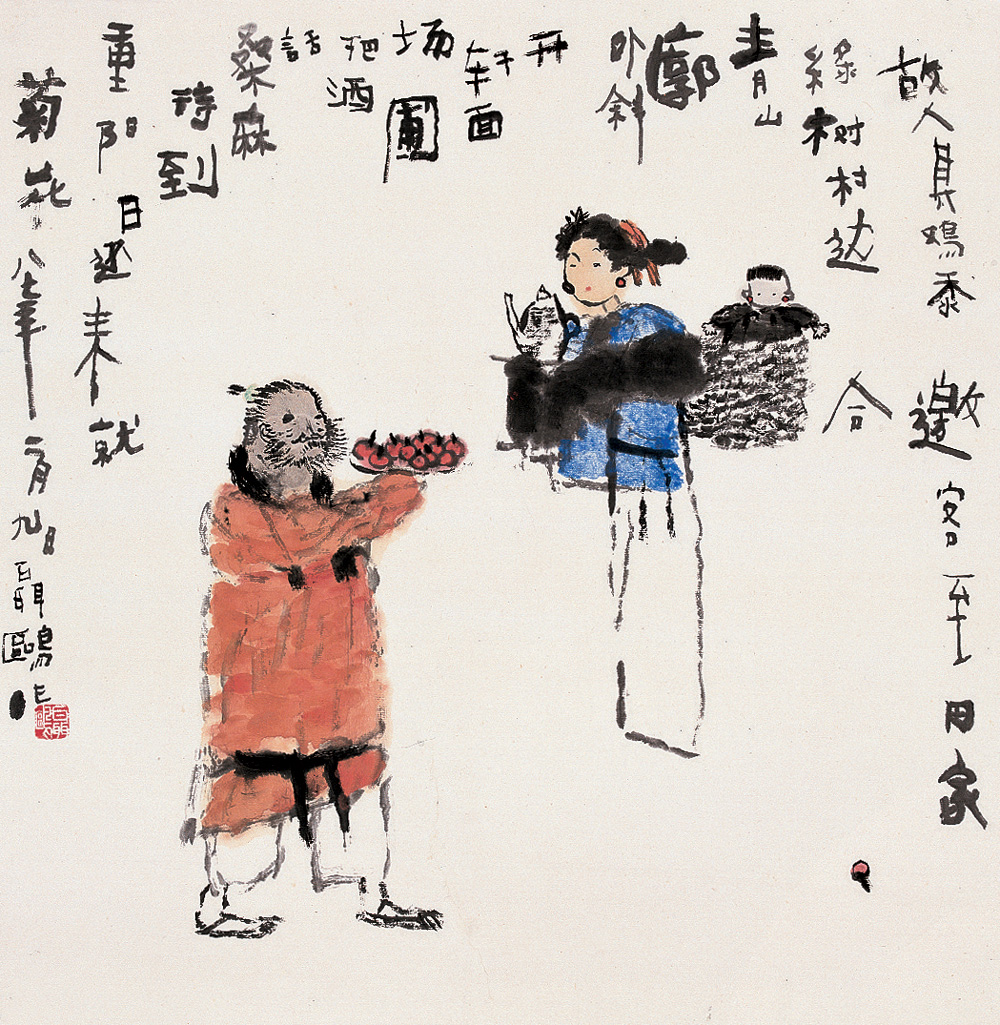 故人具鸡黍邀客至田家
綠树村边合
青山
廓
外斜
开
轩面
场圃
把酒
话
桑麻
待到
重阳日还来就
菊花八七年二月九日聶鷗作